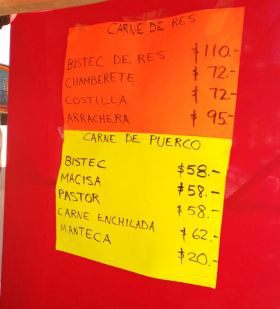 CARNE DE RES
BISTEC DE RES $110.-
CHAMBERETE $72.-
COSTILLA $72.-
ARRACHERA $95.-
CARNE DE PUERCO
BISTEC $58.-
MACISA $58.-
PASTOR $58.-
CARNE ENCHILADA $62.-
MANTECA $20.-